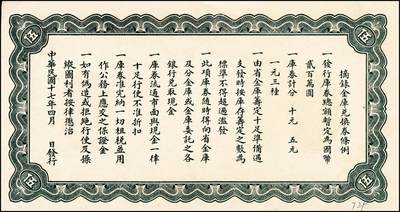 伍
伍
摘錄金庫兌換券條例
一發行庫券總額暫定為國幣
貳百萬圓
一庫券計分 十元 五元
一元三種
一由省金庫籌定十足準備遇
支發時按庫存籌定之數為
標準不得超過濫發
一此項庫券隨時得向省金庫
及分金庫或金庫委託之各
銀行兌取現金
一庫券流通市面與現金一律
十足行使不準折扣
一庫券准完納一切租稅並用
作公務上應交之保證金
一如有偽造或拒絕行使及操
縱圖利者按律懲治
中華民國十七年四月 日發行
伍
伍